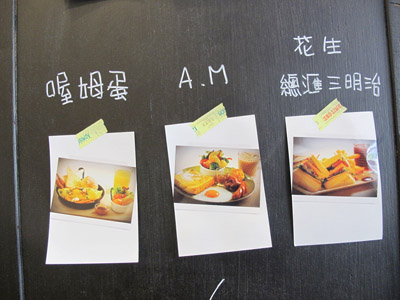 喔姆蛋
A.M
花生
總滙三明治